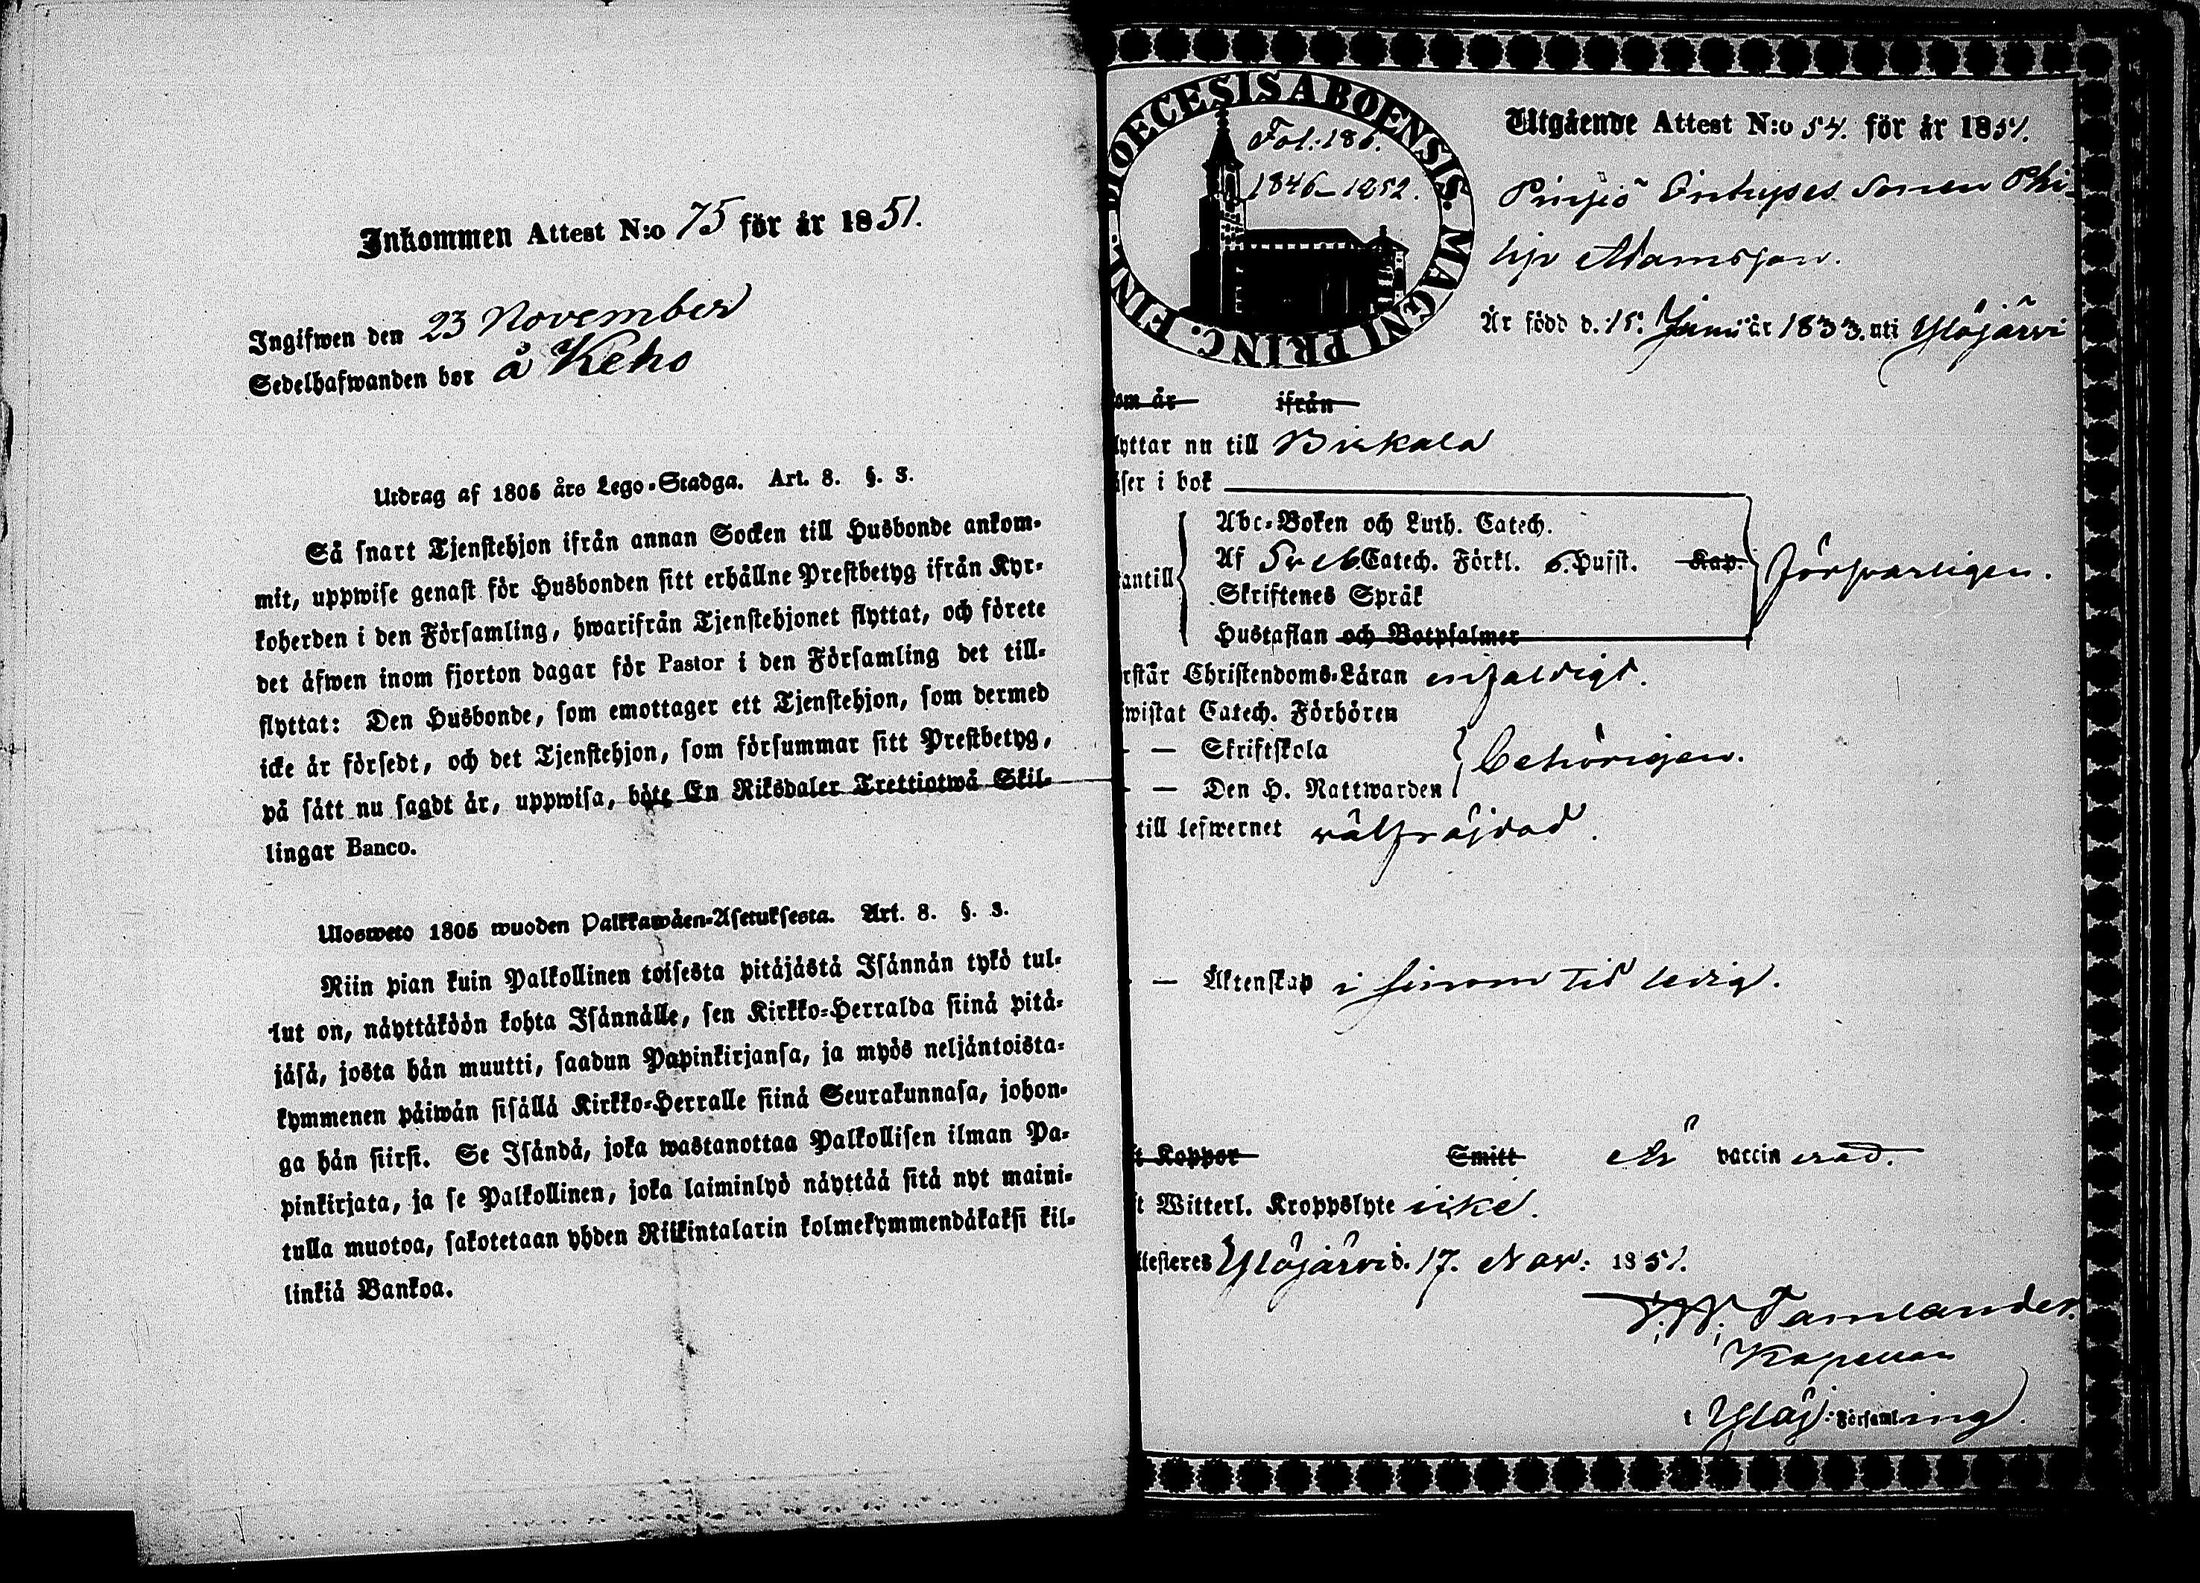 Inkommen Attest N:o 75 för år 1851.
Ingifwen den 23 November
Sedelhafwanden bor å Keho
Utdrag af 1805 års Lego-Stadga. Art. 8. §. 3.
Så snart Tjenstehjon ifrån annan Socken till Husbonde ankom-
mit, uppwise genast för Husbonden sitt erhållne Prestbetyg ifrån Kyr-
koherden i den Församling, hwarifrån Tjenstehjonet flyttat, och förete
det äfwen inom fjorton dagar för Pastor i den Församling det till-
flyttat: Den Husbonde, som emottager ett Tjenstehjon, som dermed
icke är försedt, och det Tjenstehjon, som försummar sitt Prestbetyg,
på sätt nu sagdt är, uppwisa, böte En Riksdaler Trettiotwå Skil-
lingar Banco.
Ulosweto 1805 wuoden Palkkawäen-Asetuksesta. Art. 8. §. 3.
Niin pian kuin Palkollinen toisesta pitäjästä Isännän tykö tul-
lut on, näyttäköön kohta Isännälle, sen Kirkko-Herralda siinä pitä-
jäsä, josta hän muutti, saadun Papinkirjansa, ja myös neljäntoista-
kymmenen päiwän sisällä Kirkko-Herralle siinä Seurakunnasa, johon-
ga hän siirsi. Se Isändä, joka wastanottaa Palkollisen ilman Pa-
pinkirjata, ja se Palkollinen, joka laiminlyö näyttää sitä nyt maini-
tulla muotoa, sakotetaan yhden Riikintalarin kolmekymmendäkaksi kil-
linkiä Bankoa.
DIOECESIS ABOENSIS. MAGNI PRINC. FINL.
Fol: 186.
1846-1852.
Utgående Attest N:o 54. för år 1851.
Sonen Phi-
lip Adamsson.
Är född d. 15. Juni år 1833. uti Ylöjärvi
om år ifrån
lyttar nu till Birkala
äser i bok
Abc-Boken och Luth. Catech.
Af Catech. Förkl. 6. Hufst. Kap.
antill
Skriftenes Språk
Hustaflan och Botpsalmer
försvarligen.
rstår Christendoms-Läran enfaldigt.
wistat Catech. Förhören
- — Skriftskola
- — Den H. Nattwarden
behörigen.
till lefwernet välfräjdad.
- — Äktenskap i sinom tid ledig.
t Koppor Smitt är vaccinerad.
t Witterl. Kroppslyte icke.
ttesteres Ylöjärvi d. 17. Nov: 1851.
Tamlander.
Kapellan
i Ylöj: Församling.